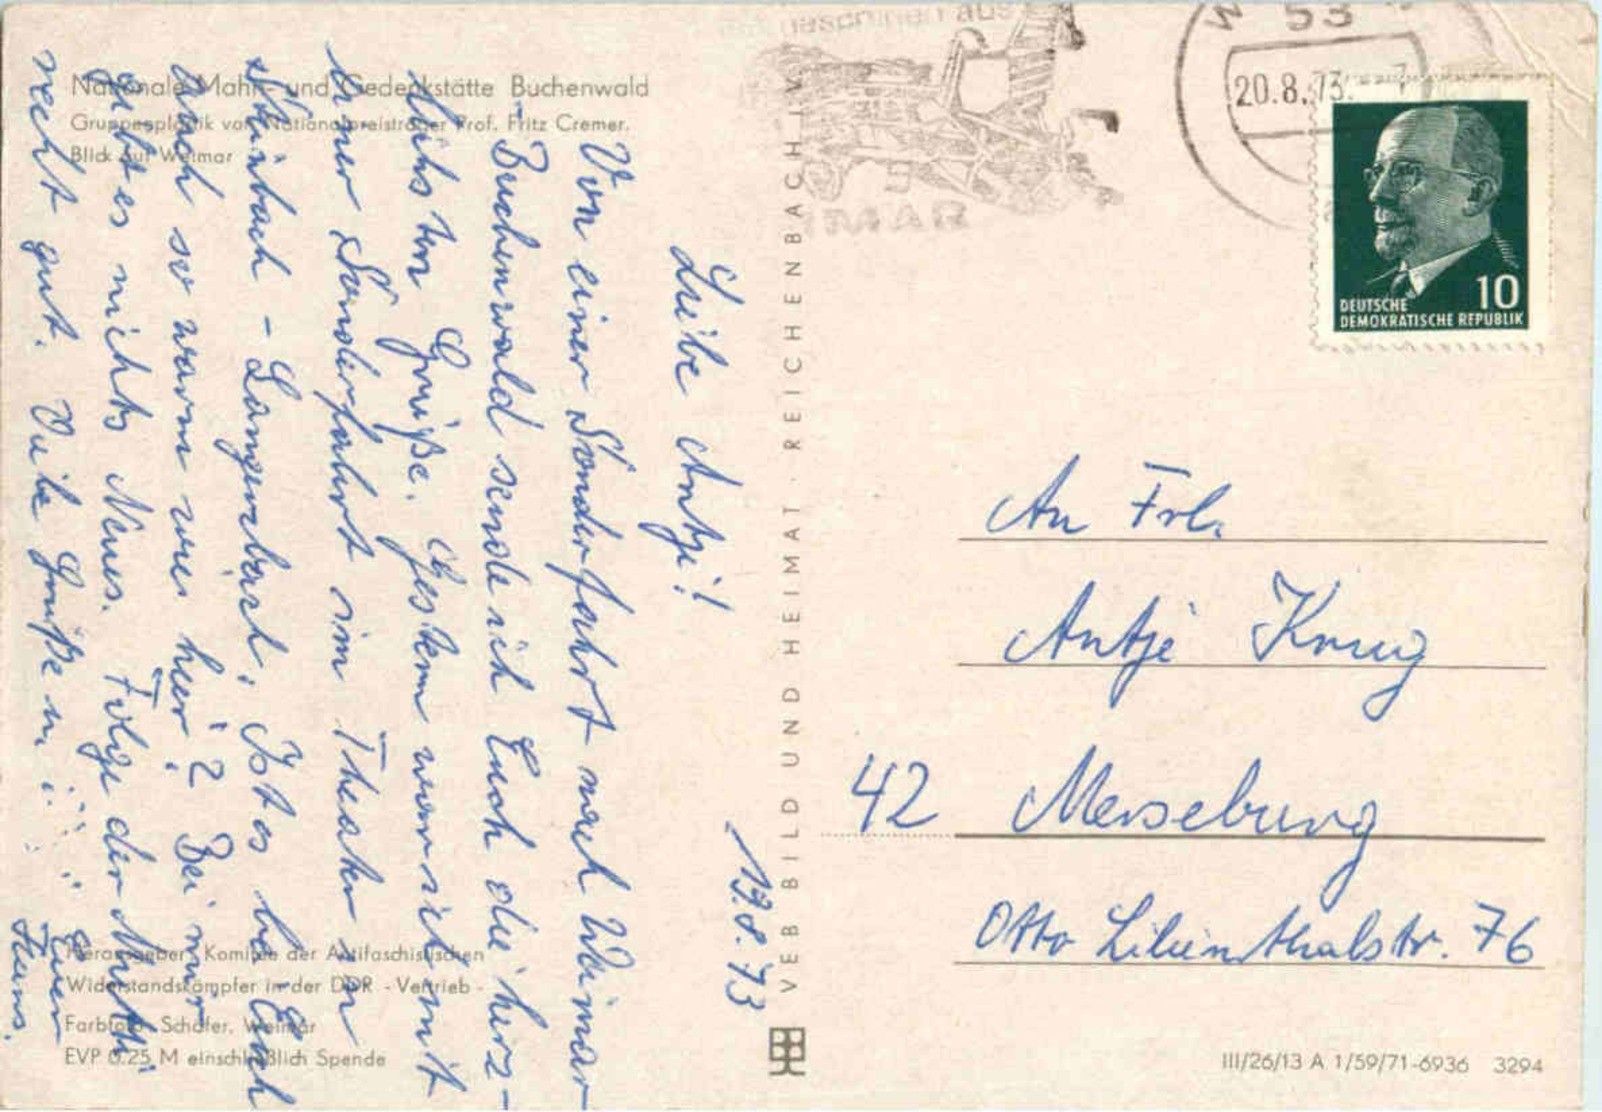 Nationale Mahn- und Gedenkstätte Buchenwald
Gruppenplastik von Nationalpreisträger Prof. Fritz Cremer.
Blick auf Weimar
19.8.73
Liebe Antje!
Von einer Sonderfahrt nach Weimar-
Buchenwald sende ich Euch die herz-
lichsten Grüße. Gestern war ich mit
einer Sonderfahrt im Theater in
Steinbach - Langenbach. Ist es bei Euch
auch so warm wie hier? Bei mir
gibt es nichts Neues. Folge der Mutti
recht gut. Viele Grüße
Euer
Hans.
Herausgeber: Komitee der Antifaschistischen
Widerstandskämpfer in der DDR - Vertrieb -
Farbfoto: Schäfer, Weimar
EVP 0.25 M einschließlich Spende
VEB BILD UND HEIMAT · REICHENBACH i. V.
maschinen aus
IMAR
53
20.8.73.
DEUTSCHE
DEMOKRATISCHE REPUBLIK
10
An Frl.
Antje Krug
42 Merseburg
Otto Lilienthalstr. 76
III/26/13 A 1/59/71-6936 3294